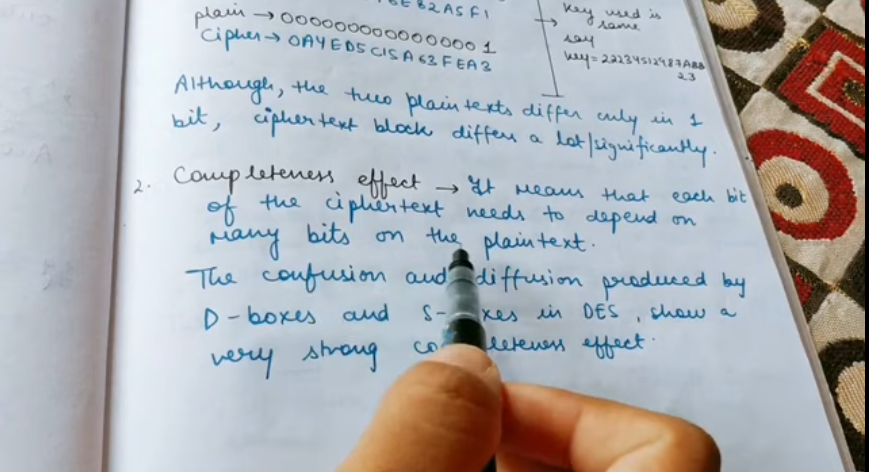 plain → 0000000000000001
Cipher → 0A4ED5C15A63FEA3
Key used is
same
say
key = 22234512987ABB
23
Although, the two plaintexts differ only in 1
bit, ciphertext block differs a lot/significantly.
2. Completeness effect → It means that each bit
of the ciphertext needs to depend on
many bits on the plaintext.
The confusion and diffusion produced by
D-boxes and S- xes in DES, show a
very strong co leteness effect.